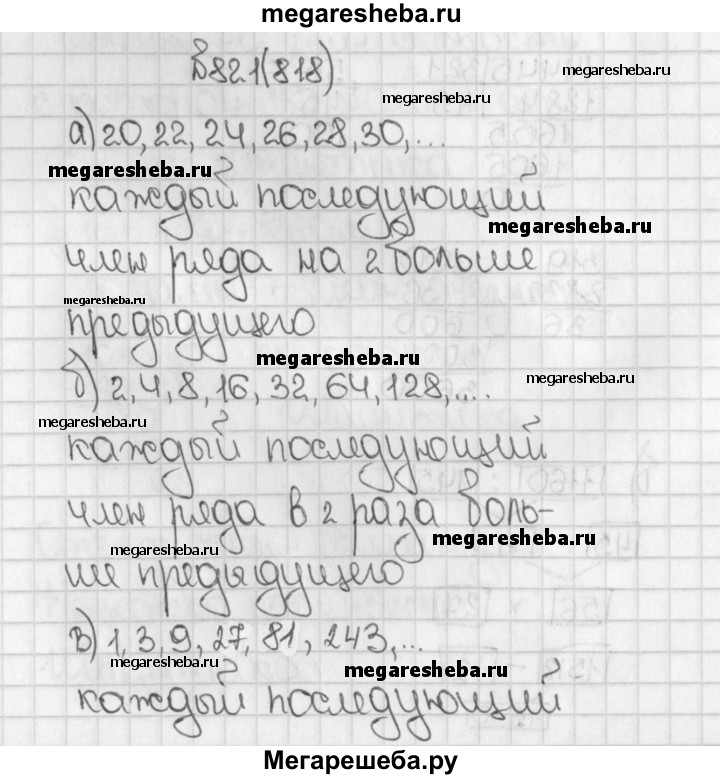 megaresheba.ru
№821(818)
megaresheba.ru
megaresheba.ru
а) 20, 22, 24, 26, 28, 30, ...
megaresheba.ru
каждый последующий
megaresheba.ru
член ряда на 2 больше
megaresheba.ru
предыдущего
megaresheba.ru
б) 2, 4, 8, 16, 32, 64, 128, ....
megaresheba.ru
megaresheba.ru
каждый последующий
член ряда в 2 раза боль-
megaresheba.ru
megaresheba.ru
ше предыдущего
в) 1, 3, 9, 27, 81, 243, ...
megaresheba.ru
megaresheba.ru
каждый последующий
Мегарешеба.ру